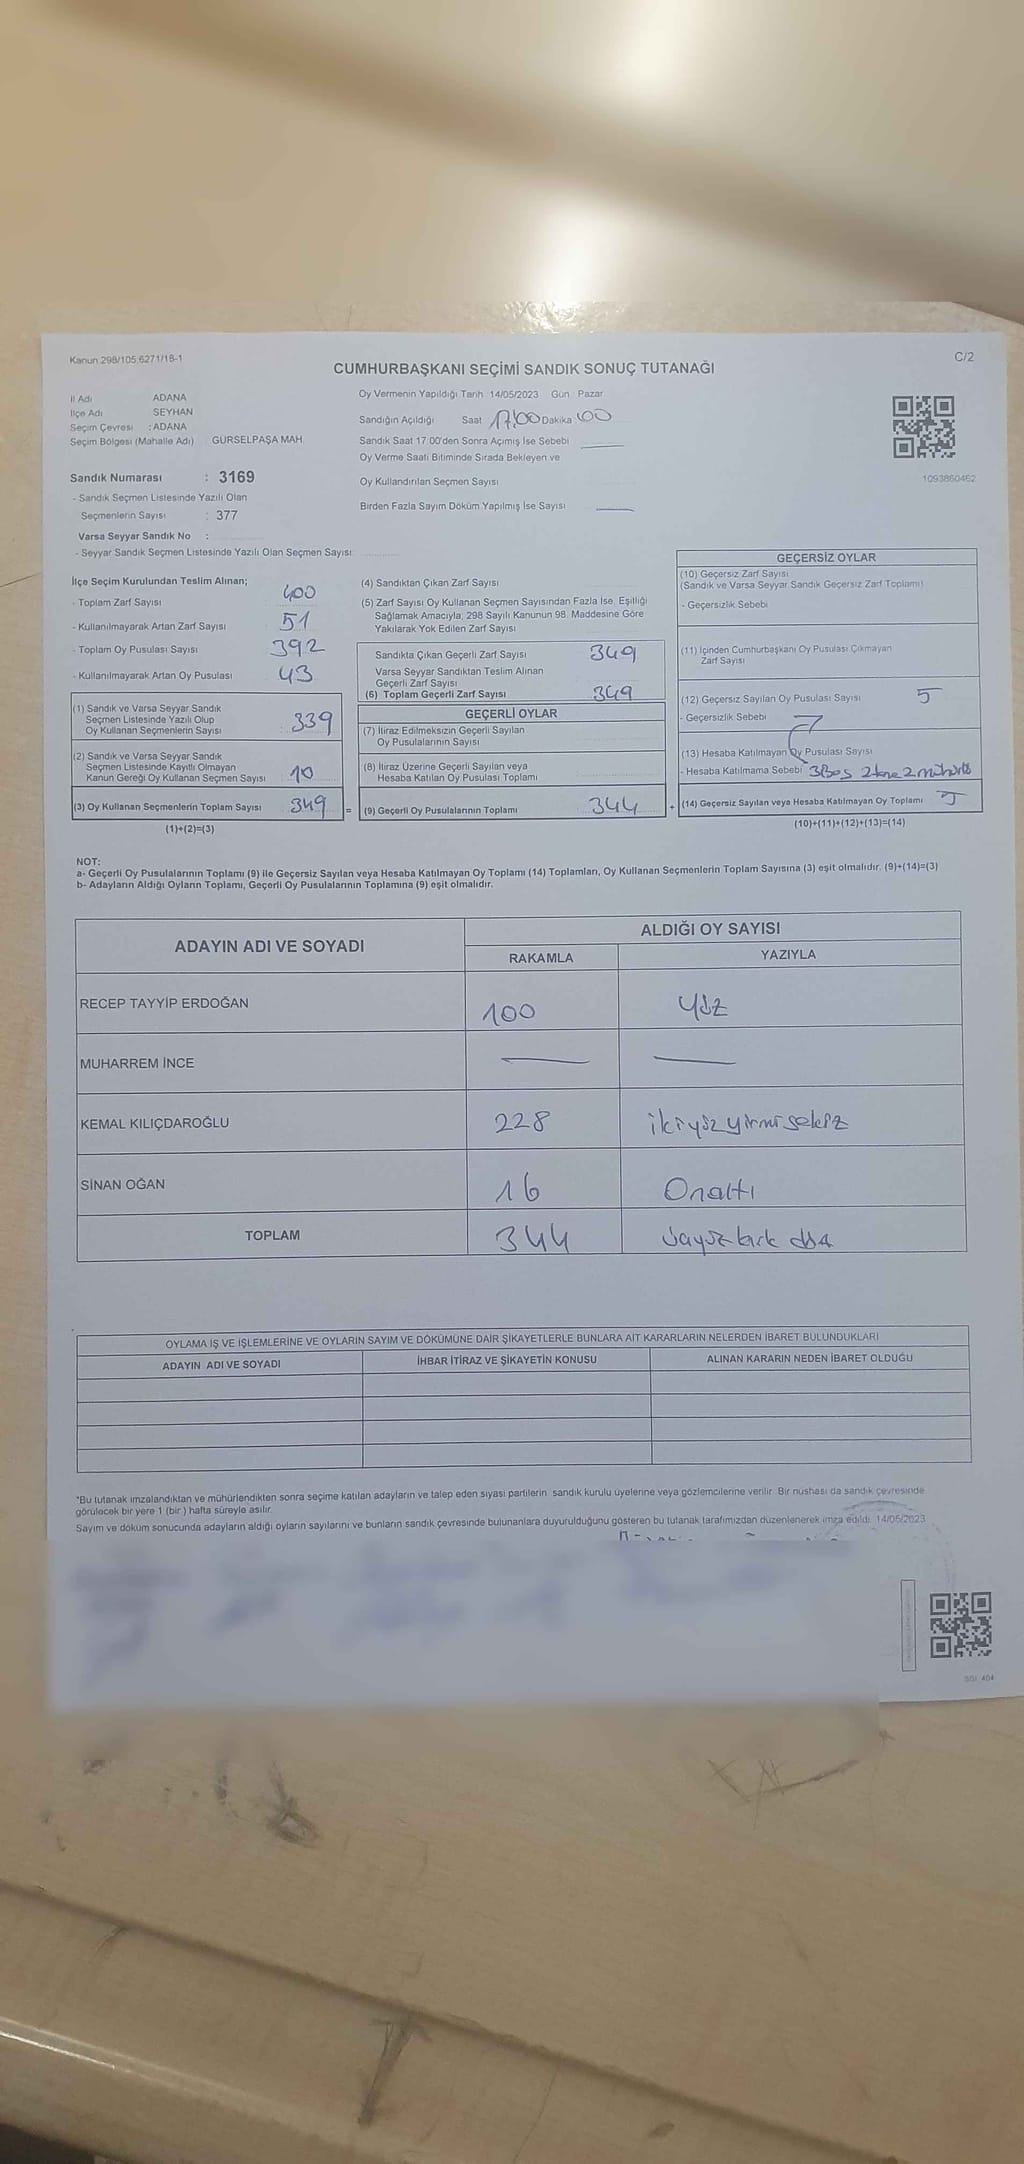 Kanun 298/105.6271/18-1
C/2
CUMHURBAŞKANI SEÇİMİ SANDIK SONUÇ TUTANAĞI
İl Adı ADANA
İlçe Adı SEYHAN
Seçim Çevresi : ADANA
Seçim Bölgesi (Mahalle Adı) GÜRSELPAŞA MAH.
Sandık Numarası : 3169
- Sandık Seçmen Listesinde Yazılı Olan
Seçmenlerin Sayısı : 377
Varsa Seyyar Sandık No :
- Seyyar Sandık Seçmen Listesinde Yazılı Olan Seçmen Sayısı:
Oy Vermenin Yapıldığı Tarih 14/05/2023 Gün Pazar
Sandığın Açıldığı Saat 17.00 Dakika 00
Sandık Saat 17.00'den Sonra Açımış İse Sebebi
Oy Verme Saati Bitiminde Sırada Bekleyen ve
Oy Kullandırılan Seçmen Sayısı
Birden Fazla Sayım Döküm Yapılmış İse Sayısı
1093860462
İlçe Seçim Kurulundan Teslim Alınan;
- Toplam Zarf Sayısı 400
- Kullanılmayarak Artan Zarf Sayısı 51
- Toplam Oy Pusulası Sayısı 392
- Kullanılmayarak Artan Oy Pusulası 43
(1) Sandık ve Varsa Seyyar Sandık
Seçmen Listesinde Yazılı Olup
Oy Kullanan Seçmenlerin Sayısı 339
(2) Sandık ve Varsa Seyyar Sandık
Seçmen Listesinde Kayıtlı Olmayan
Kanun Gereği Oy Kullanan Seçmen Sayısı 10
(3) Oy Kullanan Seçmenlerin Toplam Sayısı 349 =
(1)+(2)=(3)
(4) Sandıktan Çıkan Zarf Sayısı
(5) Zarf Sayısı Oy Kullanan Seçmen Sayısından Fazla İse, Eşitliği
Sağlamak Amacıyla, 298 Sayılı Kanunun 98. Maddesine Göre
Yakılarak Yok Edilen Zarf Sayısı
Sandıkta Çıkan Geçerli Zarf Sayısı 349
Varsa Seyyar Sandıktan Teslim Alınan
Geçerli Zarf Sayısı
(6) Toplam Geçerli Zarf Sayısı 349
GEÇERLİ OYLAR
(7) İtiraz Edilmeksizin Geçerli Sayılan
Oy Pusulalarının Sayısı
(8) İtiraz Üzerine Geçerli Sayılan veya
Hesaba Katılan Oy Pusulası Toplamı
(9) Geçerli Oy Pusulalarının Toplamı 344 +
GEÇERSİZ OYLAR
(10) Geçersiz Zarf Sayısı
(Sandık ve Varsa Seyyar Sandık Geçersiz Zarf Toplamı)
- Geçersizlik Sebebi
(11) İçinden Cumhurbaşkanı Oy Pusulası Çıkmayan
Zarf Sayısı
(12) Geçersiz Sayılan Oy Pusulası Sayısı 5
- Geçersizlik Sebebi
(13) Hesaba Katılmayan Oy Pusulası Sayısı
- Hesaba Katılmama Sebebi 3 Boş 2 tane 2 mühürlü
(14) Geçersiz Sayılan veya Hesaba Katılmayan Oy Toplamı 5
(10)+(11)+(12)+(13)=(14)
NOT:
a- Geçerli Oy Pusulalarının Toplamı (9) ile Geçersiz Sayılan veya Hesaba Katılmayan Oy Toplamı (14) Toplamları, Oy Kullanan Seçmenlerin Toplam Sayısına (3) eşit olmalıdır. (9)+(14)=(3)
b- Adayların Aldığı Oyların Toplamı, Geçerli Oy Pusulalarının Toplamına (9) eşit olmalıdır.
ADAYIN ADI VE SOYADI
ALDIĞI OY SAYISI
RAKAMLA YAZIYLA
RECEP TAYYİP ERDOĞAN 100 Yüz
MUHARREM İNCE
KEMAL KILIÇDAROĞLU 228 ikiyüzyirmisekiz
SİNAN OĞAN 16 Onaltı
TOPLAM 344 üçyüzkırk dört
OYLAMA İŞ VE İŞLEMLERİNE VE OYLARIN SAYIM VE DÖKÜMÜNE DAİR ŞİKAYETLERLE BUNLARA AİT KARARLARIN NELERDEN İBARET BULUNDUKLARI
ADAYIN ADI VE SOYADI İHBAR İTİRAZ VE ŞİKAYETİN KONUSU ALINAN KARARIN NEDEN İBARET OLDUĞU
*Bu tutanak imzalandıktan ve mühürlendikten sonra seçime katılan adayların ve talep eden siyasi partilerin sandık kurulu üyelerine veya gözlemcilerine verilir. Bir nüshası da sandık çevresinde
görülecek bir yere 1 (bir) hafta süreyle asılır.
Sayım ve döküm sonucunda adayların aldığı oyların sayılarını ve bunların sandık çevresinde bulunanlara duyurulduğunu gösteren bu tutanak tarafımızdan düzenlenerek imza edildi. 14/05/2023